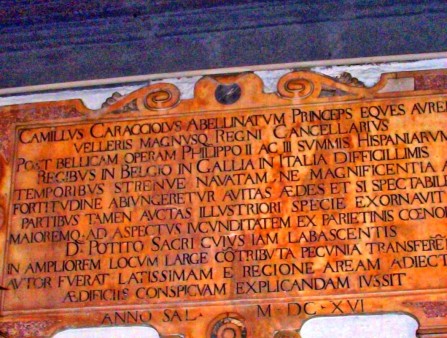 CAMILLVS CARACCIOLVS ABELLINATVM PRINCEPS EQVES AVRE
VELLERIS MAGNVSQ REGNI CANCELLARIVS
POST BELLICAM OPERAM PHILIPPO II AC III SVMMIS HISPANIARVM
REGIBVS IN BELGIO IN GALLIA IN ITALIA DIFFICILLIMIS
TEMPORIBVS STRENVE NAVATAM NE MAGNIFICENTIA A
FORTITVDINE ABIVNGERETVR AVITAS ÆDES ET SI SPECTABILES
PARTIBVS TAMEN AVCTAS ILLVSTRIORI SPECIE EXORNAVIT
MAIOREMQ. AD ASPECTVS IVCVNDITATEM EX PARIETINIS CŒNOB
D. POTITO SACRI CVIVS IAM LABASCENTIS
IN AMPLIOREM LOCVM LARGE CŌTRIBVTA PECVNIA TRANSFERĒD
AVTOR FVERAT LATISSIMAM E REGIONE AREAM ADIECTI
ÆDIFICIIS CONSPICVAM EXPLICANDAM IVSSIT
ANNO SAL. M DC XVI